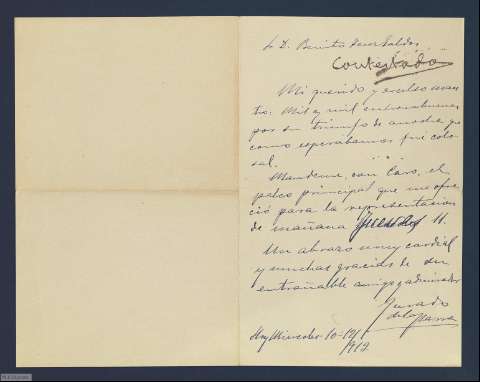 Sr D. Benito Perez Galdos
Contestado
Mi querido y excelso maes-
tro: Mil y mil enhorabuenas
por su triunfo de anoche, q.
como esperabamos fué colo-
sal.
Mandeme, con Caro, el
palco principal que me ofre-
ció para la representacion
de mañana jueves 11.
Un abrazo muy cordial
y muchas gracias de su
entrañable amigo y admirador
Jurado
de la Parra
Hoy Miercoles 10-
1912